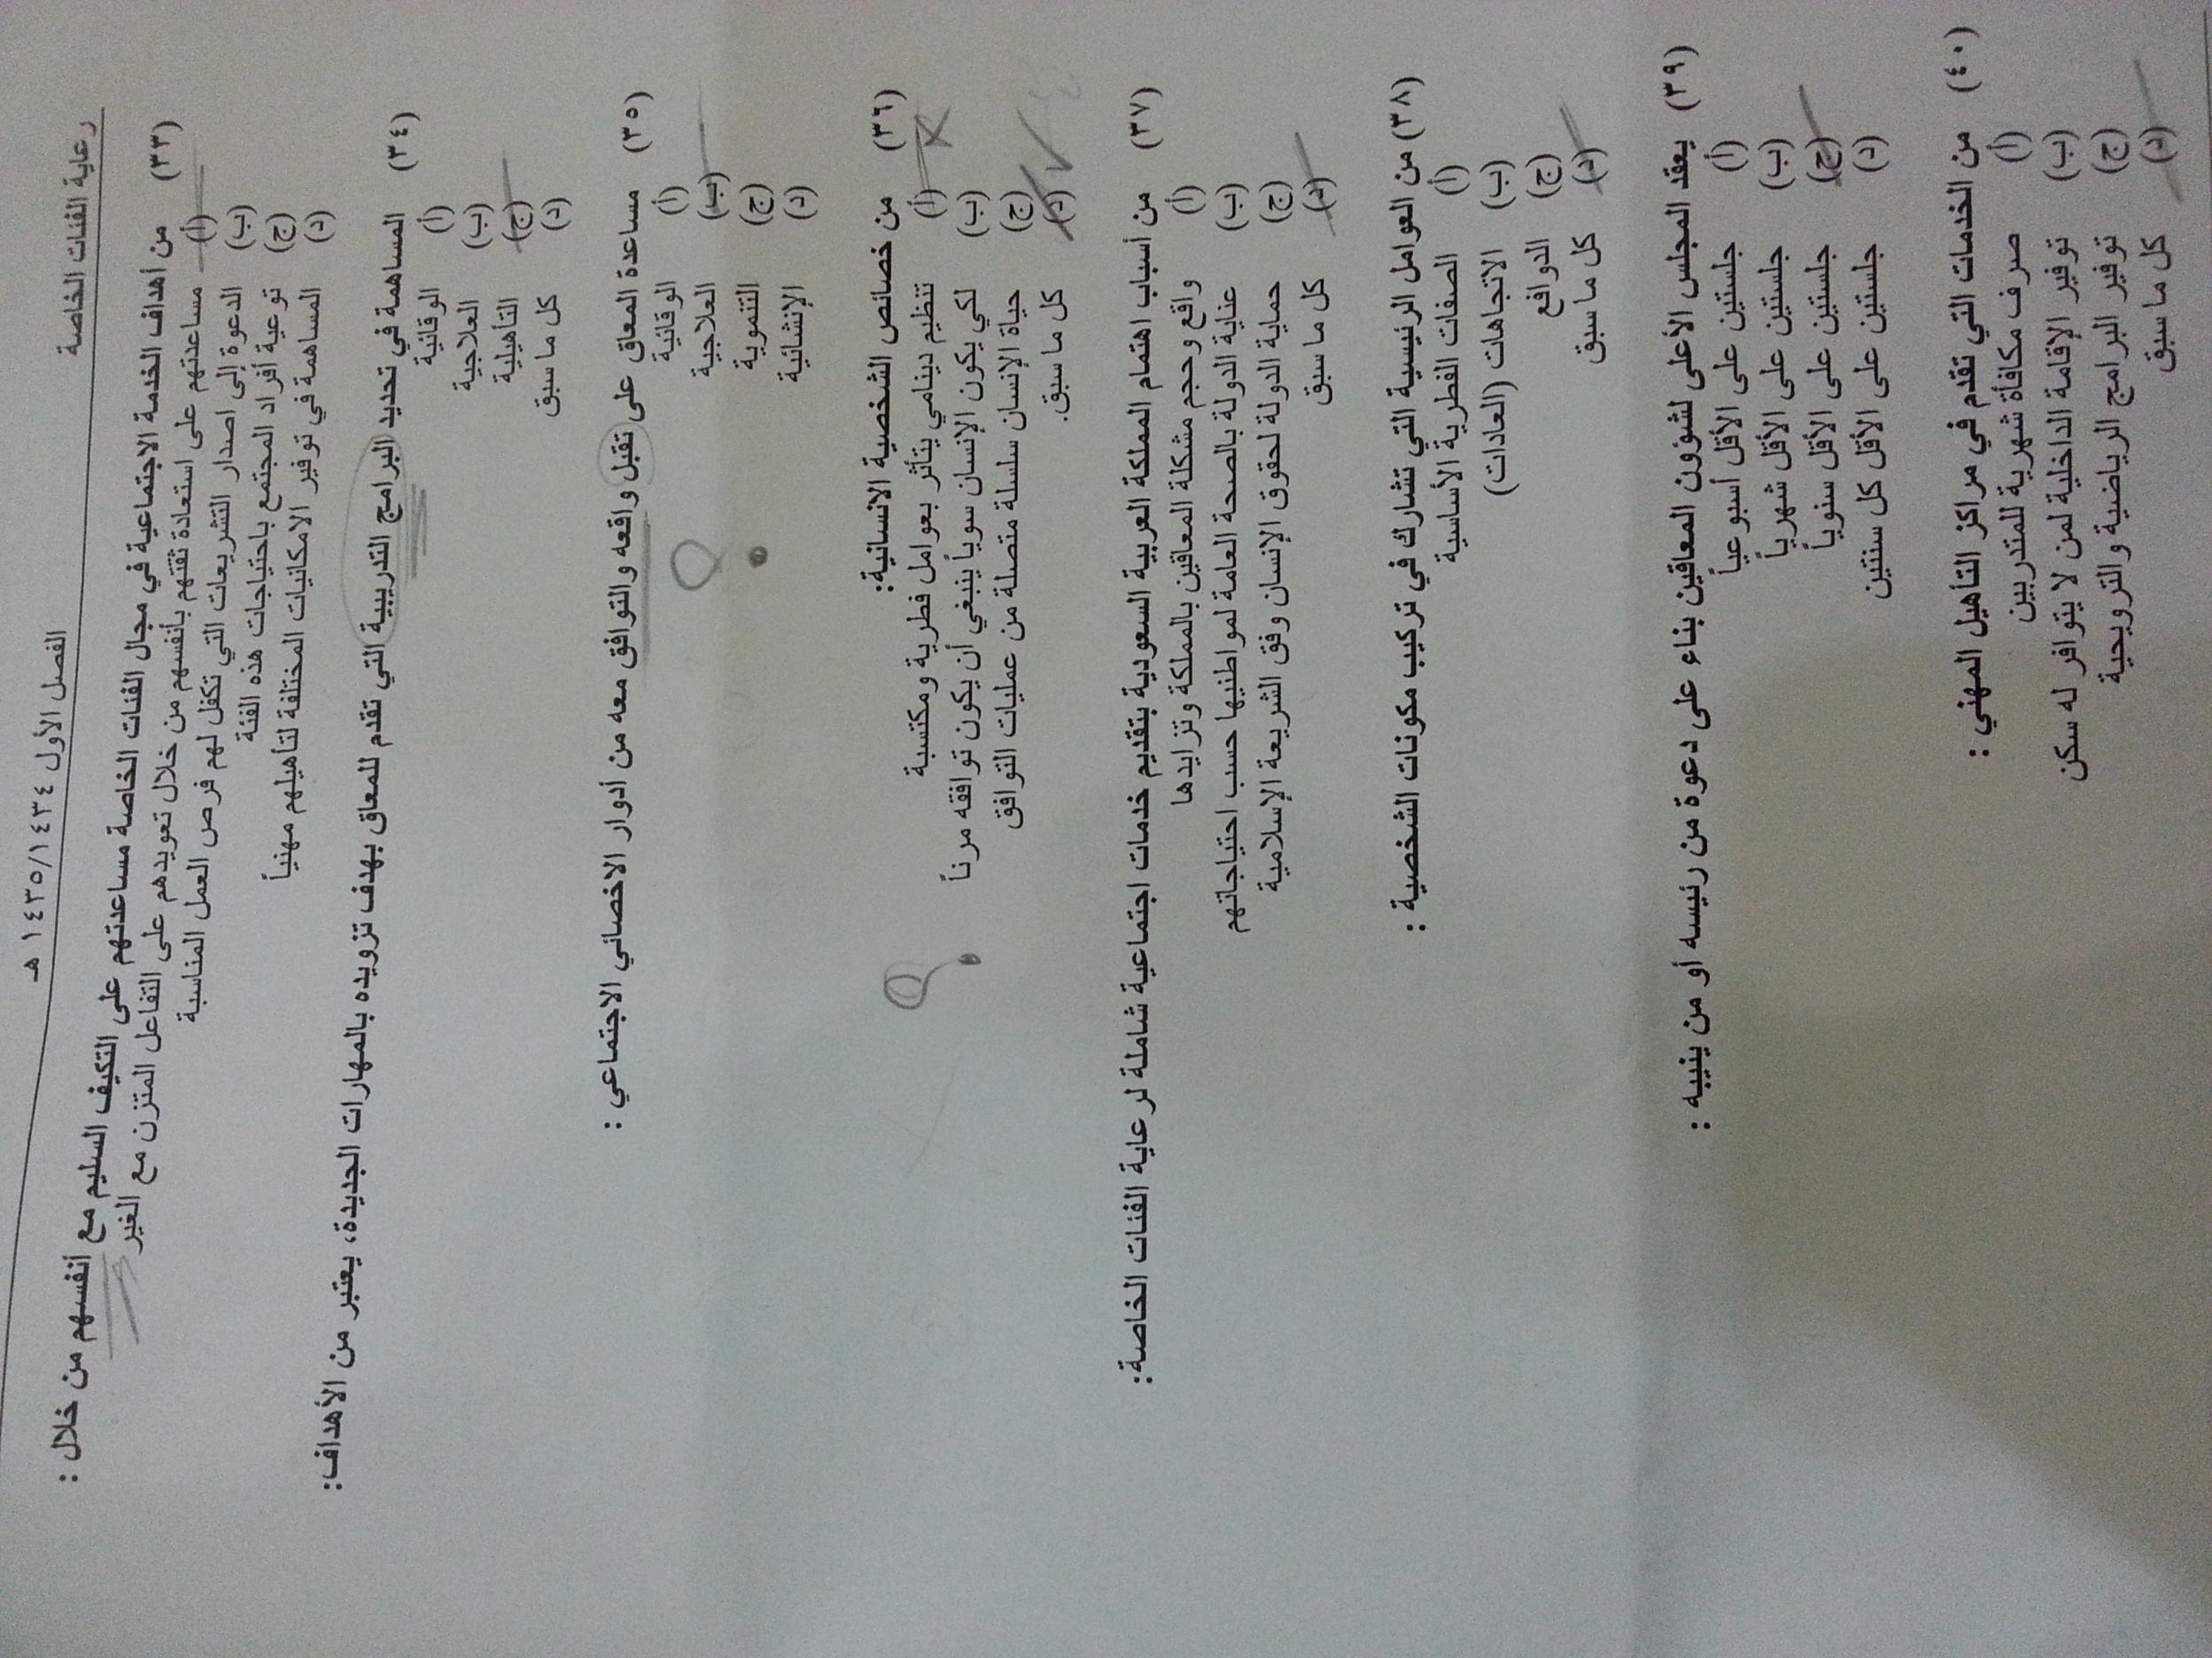 رعاية الفئات الخاصة
الفصل الأول ١٤٣٤/١٤٣٥ هـ
(٣٣) من أهداف الخدمة الاجتماعية في مجال الفئات الخاصة مساعدتهم على التكيف السليم مع أنفسهم من خلال :
(أ) مساعدتهم على استعادة ثقتهم بأنفسهم من خلال تعويدهم على التفاعل المتزن مع الغير
(ب) الدعوة إلى اصدار التشريعات التي تكفل لهم فرص العمل المناسبة
(ج) توعية أفراد المجتمع باحتياجات هذه الفئة
(د) المساهمة في توفير الامكانيات المختلفة لتأهيلهم مهنياً
(٣٤) المساهمة في تحديد البرامج التدريبية التي تقدم للمعاق بهدف تزويده بالمهارات الجديدة، يعتبر من الأهداف:
(أ) الوقائية
(ب) العلاجية
(ج) التأهيلية
(د) كل ما سبق
(٣٥) مساعدة المعاق على تقبل واقعه والتوافق معه من أدوار الاخصائي الاجتماعي :
(أ) الوقائية
(ب) العلاجية
(ج) التنموية
(د) الإنشائية
(٣٦) من خصائص الشخصية الانسانية:
(أ) تنظيم دينامي يتأثر بعوامل فطرية ومكتسبة
(ب) لكي يكون الإنسان سوياً ينبغي أن يكون توافقه مرناً
(ج) حياة الإنسان سلسلة متصلة من عمليات التوافق
(د) كل ما سبق.
(٣٧) من أسباب اهتمام المملكة العربية السعودية بتقديم خدمات اجتماعية شاملة لرعاية الفئات الخاصة:
(أ) واقع وحجم مشكلة المعاقين بالمملكة وتزايدها
(ب) عناية الدولة بالصحة العامة لمواطنيها حسب احتياجاتهم
(ج) حماية الدولة لحقوق الإنسان وفق الشريعة الإسلامية
(د) كل ما سبق
(٣٨) من العوامل الرئيسية التي تشارك في تركيب مكونات الشخصية :
(أ) الصفات الفطرية الأساسية
(ب) الاتجاهات (العادات)
(ج) الدوافع
(د) كل ما سبق
(٣٩) يعقد المجلس الأعلى لشؤون المعاقين بناء على دعوة من رئيسه أو من ينيبه :
(أ) جلستين على الأقل أسبوعياً
(ب) جلستين على الأقل شهرياً
(ج) جلستين على الأقل سنوياً
(د) جلستين على الأقل كل سنتين
(٤٠) من الخدمات التي تقدم في مراكز التأهيل المهني :
(أ) صرف مكافأة شهرية للمتدربين
(ب) توفير الإقامة الداخلية لمن لا يتوافر له سكن
(ج) توفير البرامج الرياضية والترويحية
(د) كل ما سبق